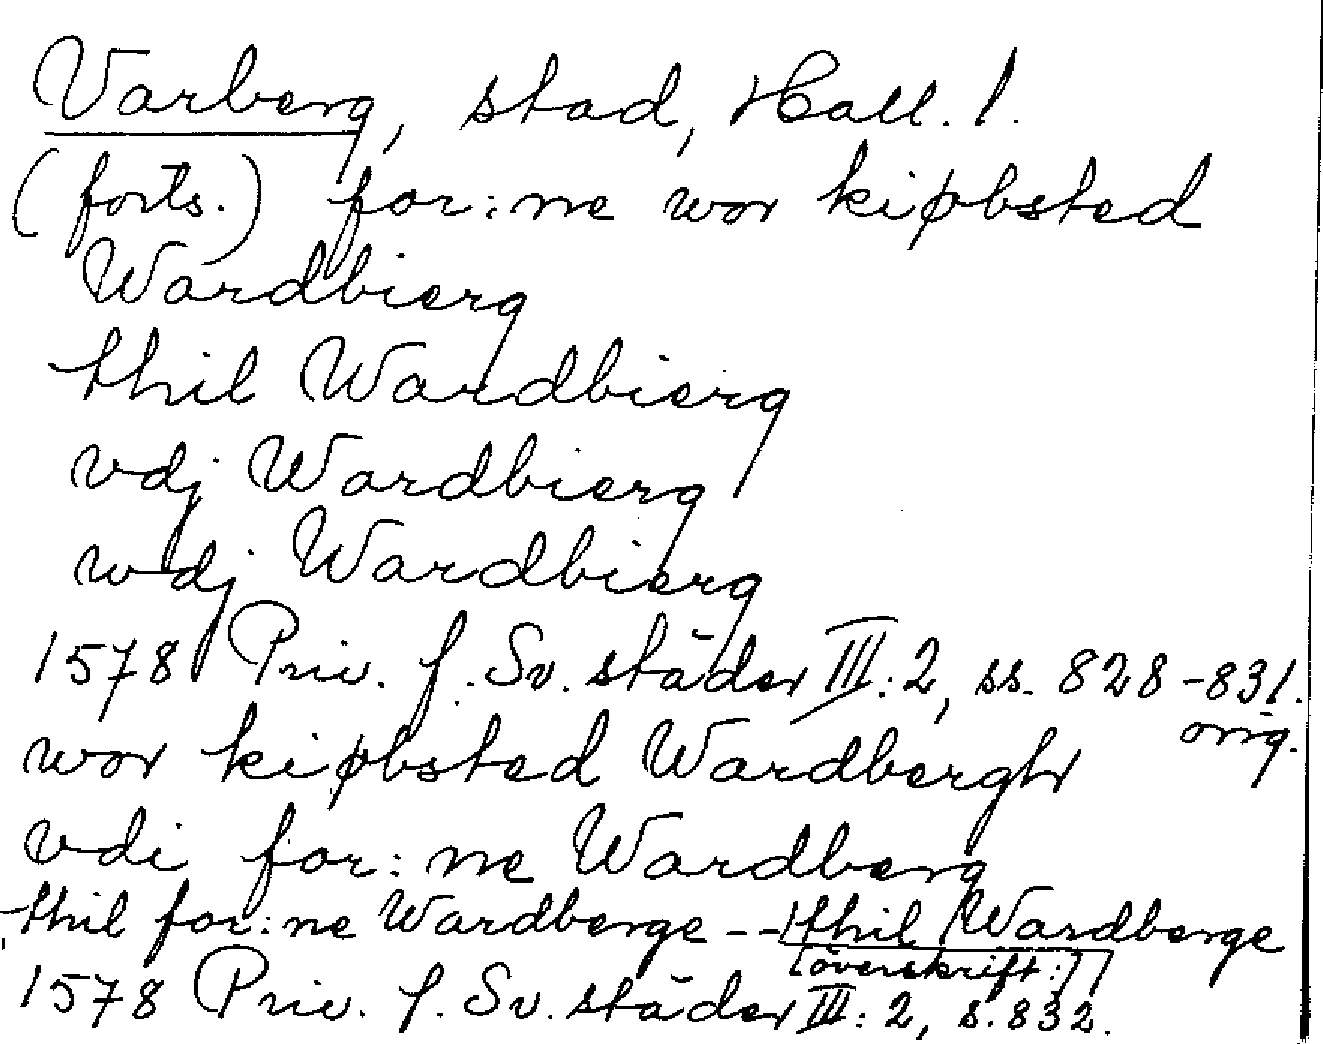 Varberg, stad, Hall. l.
(forts.) for:ne wor kiøbsted
Wardbierg
thil Wardbierg
vdj Wardbierg
wdj Wardbierg
1578 Priv. f. Sv. städer III:2, ss. 828-831.
orig.
wor kiøbsted Wardbergh
vdi for:ne Wardberg
thil for:ne Wardberge -- thil Wardberge
[överskrift:]
1578 Priv. f. Sv. städer III:2, s. 832.